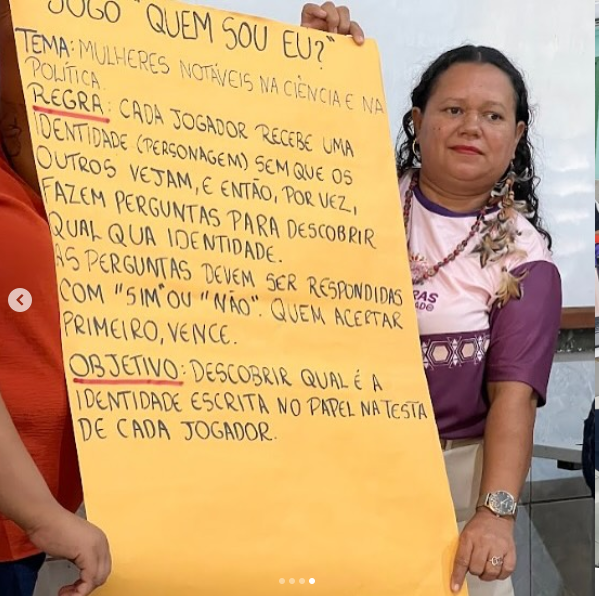 JOGO "QUEM SOU EU?"
TEMA: MULHERES NOTÁVEIS NA CIÊNCIA E NA
POLÍTICA
REGRA: CADA JOGADOR RECEBE UMA
IDENTIDADE (PERSONAGEM) SEM QUE OS
OUTROS VEJAM, E ENTÃO, POR VEZ,
FAZEM PERGUNTAS PARA DESCOBRIR
QUAL QUA IDENTIDADE.
AS PERGUNTAS DEVEM SER RESPONDIDAS
COM "SIM" OU "NÃO". QUEM ACERTAR
PRIMEIRO, VENCE.
OBJETIVO: DESCOBRIR QUAL É A
IDENTIDADE ESCRITA NO PAPEL NA TESTA
DE CADA JOGADOR.